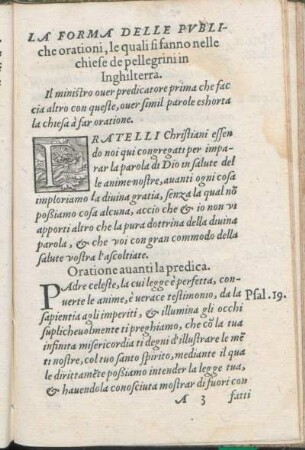 LA FORMA DELLE PVBLI-
che orationi, le quali si fanno nelle
chiese de pellegrini in
Inghilterra.
Il ministro ouer predicatore prima che fac
cia altro con queste, ouer simil parole eshorta
la chiesa à far oratione.
FRATELLI Christiani essen
do noi qui congregati per impa-
rar la parola di Dio in salute del
le anime nostre, auanti ogni cosa
imploriamo la diuina gratia, senza la qual nõ
possiamo cosa alcuna, accio che & io non vi
apporti altro che la pura dottrina della diuina
parola, & che voi con gran commodo della
salute vostra l'ascoltiate.
Oratione auanti la predica.
PAdre celeste, la cui legge è perfetta, con-
uerte le anime, è verace testimonio, da la
Psal. 19.
sapientia agli imperiti, & illumina gli occhi
suplicheuolmente ti preghiamo, che cõ la tua
infinita misericordia ti degni d'illustrare le mẽ
ti nostre, col tuo santo spirito, mediante il qua
le dirittamẽte possiamo intender la legge tua,
& hauendola conosciuta mostrar di fuori con
A 3 fatti